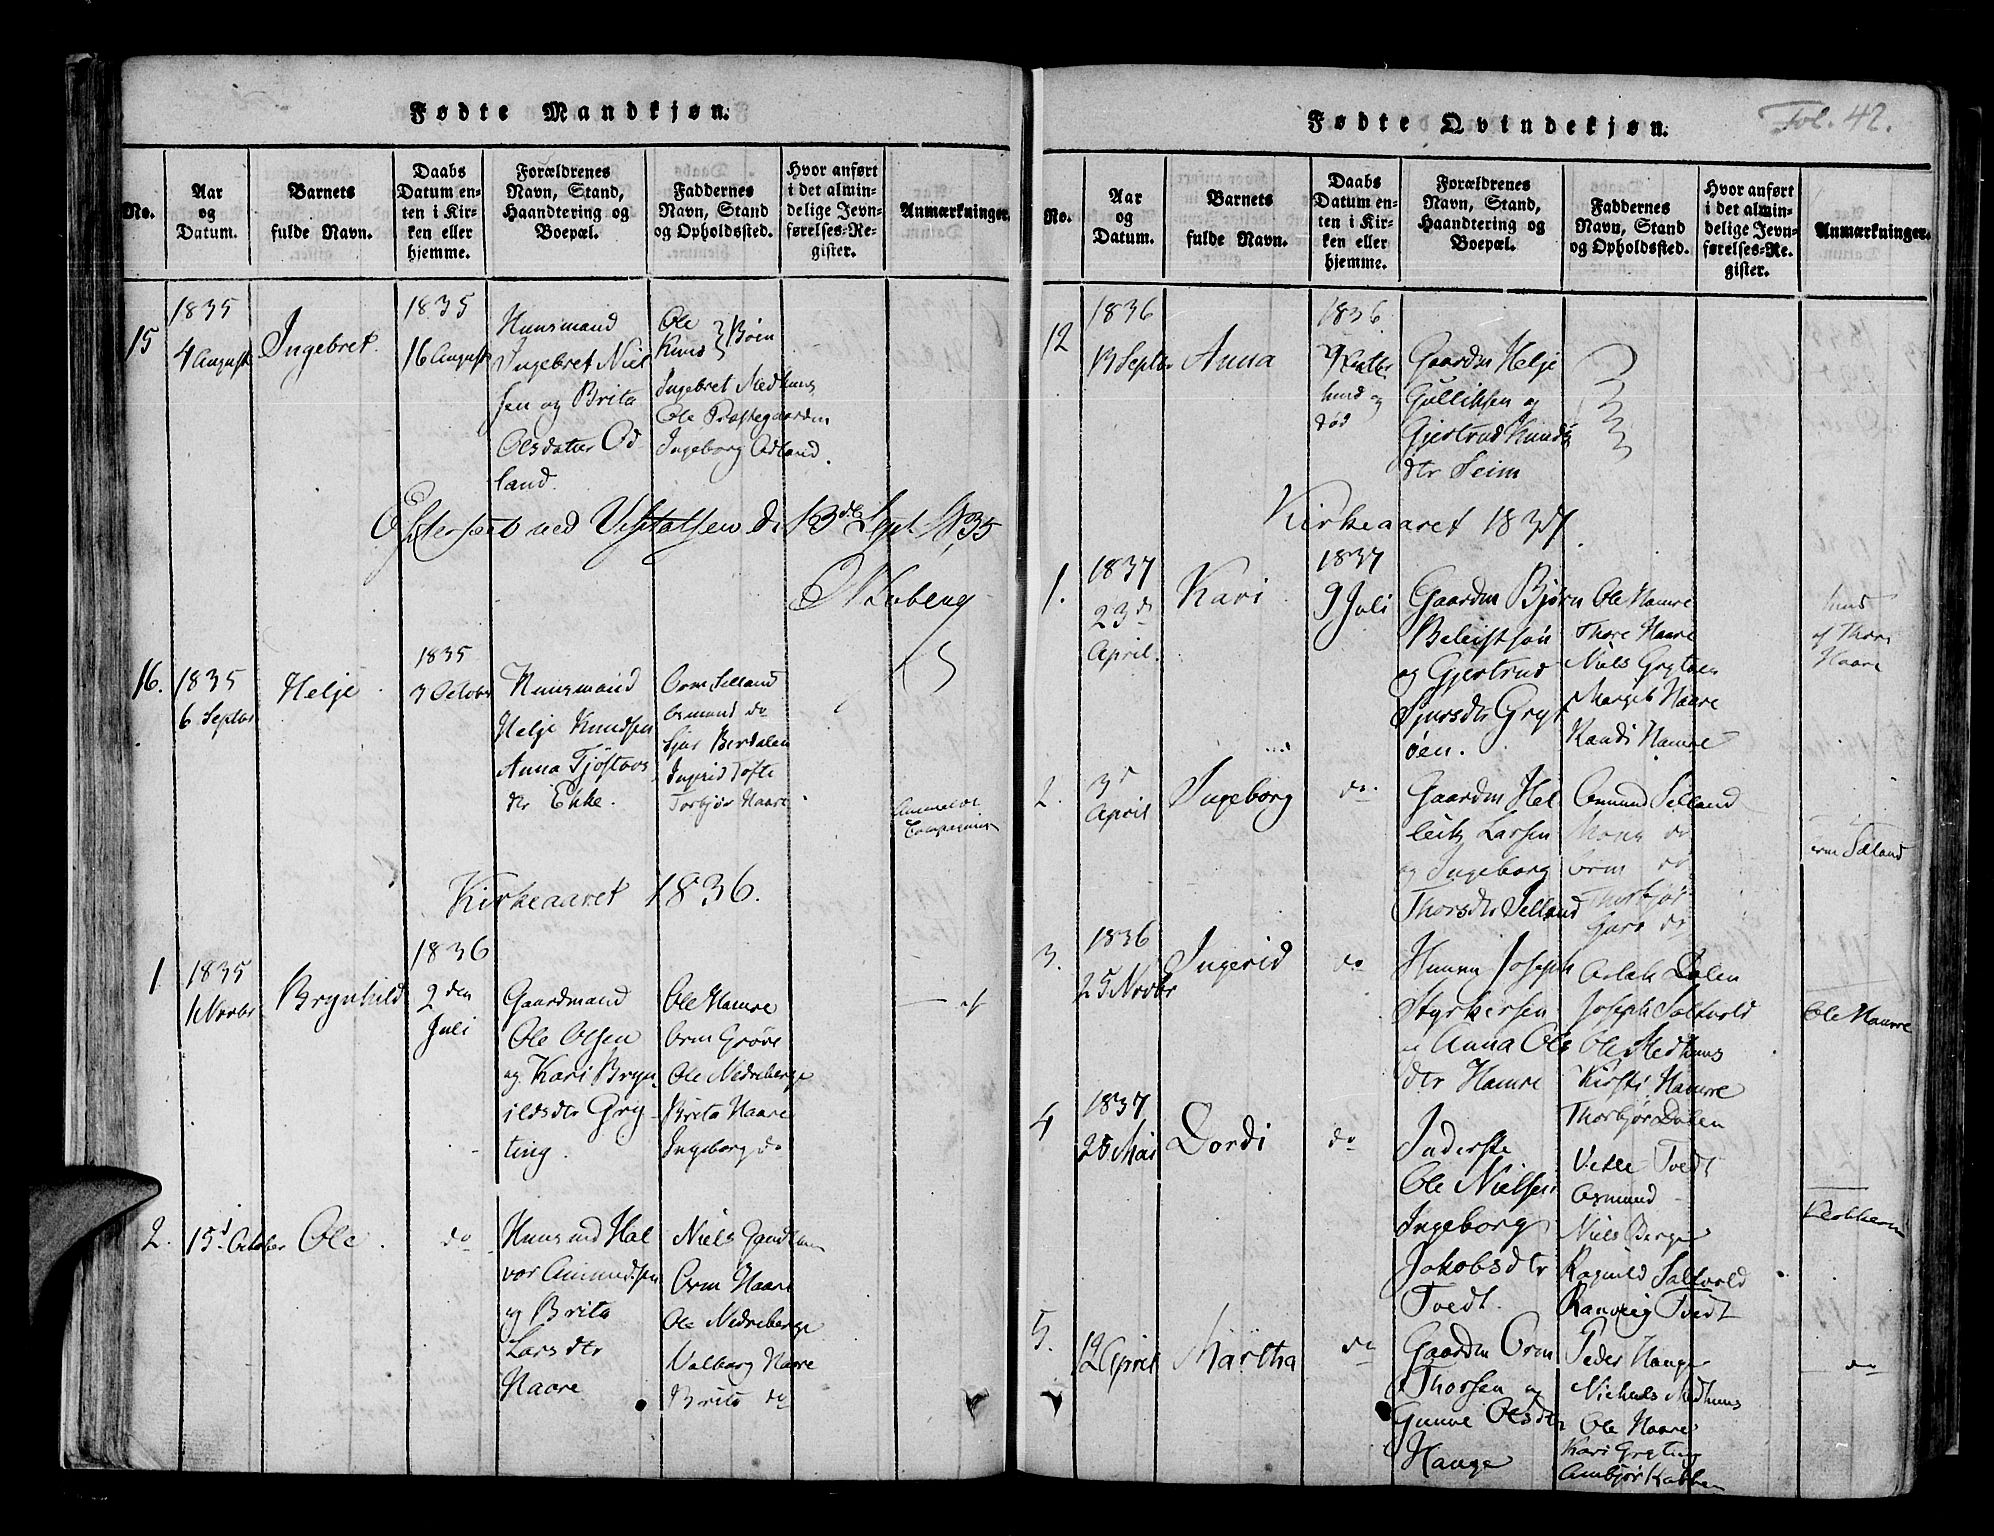 Fødte Mandkjøn.
No.
Aar
og
Datum.
Barnets
fulde Navn.
Daabs
Datum en-
ten i Kir-
ken eller
hjemme.
Forældrenes
Navn, Stand,
Haandtering og
Boepæl.
Faddernes
Navn, Stand
og Opholdssted.
Hvor anført
i det almin-
delige Jevn-
førelses-Re-
gister.
Anmærkninger.
15
1835
4 August
Ingebret.
1835
16 August
Huusmand
Ingebret Niel
sen og Brita
Olsdatter Od
land.
Ole
Knud } Bøen
Ingebret Medhuus
Ole Præstegaarden
Ingeborg Odland.
Efterseet ved Visitatsen d. 13de Sept 1835
16.
1835
6 Septbr
Helje
1835
3 Octobr
Huusmand
Helje Knudsen
Anna Tjøstovs
dtr Ekke.
Orm Selland
Asmund do
Sjur Berdalen
Ingrid Tofte
Torbjør Haare
Kirkeaaret 1836.
1
1835
1 Novbr
Brynhild
1836
2den
Juli
Gaardmand
Ole Olsen
og Kari Bryn
ildsdtr Gry
ting.
Ole Hamre
Orm Grøve
Ole Nedreberge
Brita Haare
Ingeborg do
2.
15d October
Ole
do
Huusmd Hal
vor Amundsen
og Brita
Larsdtr
Haare
Orm Haare
Ole Nedreberge
Valborg Haare
Brita do
Fødte Qvindekjøn.
Fol. 42.
No.
Aar
og
Datum.
Barnets
fulde Navn.
Daabs
Datum en-
ten i Kir-
ken eller
hjemme.
Forældrenes
Navn, Stand,
Haandtering og
Boepæl.
Faddernes
Navn, Stand
og Opholdssted.
Hvor anført
i det almin-
delige Jevn-
førelses-Re-
gister.
Anmærkninger.
12
1836
13 Septbr
Anna
1836
død
Gaardm Helje
Gulliksen og
Gjertrud Knuds
dtr Seim
Kirkeaaret 1837.
1.
1837
23d
April.
Kari
1837
9 Juli
Gaardm Bjørn
og Gjertrud
Sjursdtr Gryt
øen.
Ole Hamre
Thore Haare
Niels Grytøen
Margit Haare
Randi Hamre
af Thore
Haare
2.
3d
April
Ingeborg
do
Gaardm Hel
leik Larsen
og Ingeborg
Thorsdtr Selland
Asmund Selland
Mons do
Orm do
Thorbjør
Guro do
Orm Selland
3.
1836
25 Novbr
Ingerid
do
Huusm Joseph
Styrkersen
og Anna Ols
dtr Hamre
Aslak Dalen
Joseph Saltvold
Ole Medhuus
Kirsti Hamre
Thorbjør Dalen
Ole Haare
4
1837
25 Mai
Dordi
do
Inderste
Ole Nielsen
Ingeborg
Jakobsdtr
Tvedt.
Vetle Tvedt
Asmund
Niels Berge
Ragnild Saltvold
Ranveig Tvedt
Klokkeren
5.
12 April
Martha
do
Gaardm Orm
Thorsen og
Gunvor Olsdtr
Hauge
Peder Hauge
Nickuls Medhuus
Ole Haare
Kari Gryting
Ambjør Kabben
do